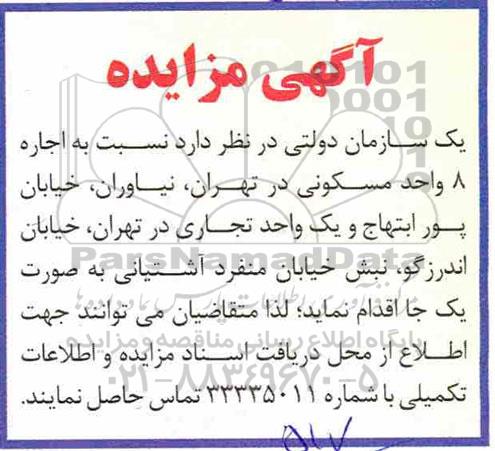 آگهی مزایده
یک سازمان دولتی در نظر دارد نسبت به اجاره
۸ واحد مسکونی در تهران، نیاوران، خیابان
پور ابتهاج و یک واحد تجاری در تهران، خیابان
اندرزگو، نبش خیابان منفرد آشتیانی به صورت
یک جا اقدام نماید؛ لذا متقاضیان می توانند جهت
اطلاع از محل دریافت اسناد مزایده و اطلاعات
تکمیلی با شماره ۳۳۳۳۵۰۱۱ تماس حاصل نمایند.
ParsNamadData
پایگاه اطلاع رسانی مناقصه و مزایده
۰۲۱-۸۸۳۴۹۶۷۰-۵